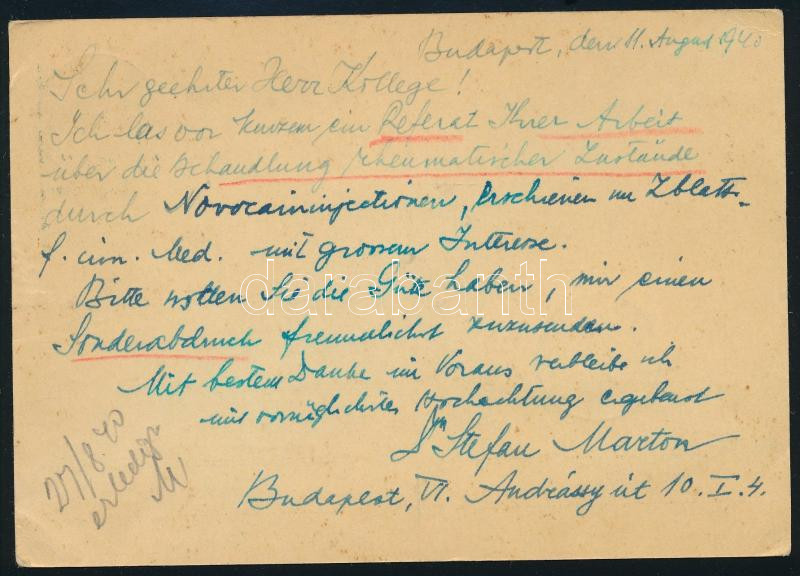 Budapest, den 11. August 1940
Sehr geehrter Herr Kollege!
Ich las vor kurzem ein Referat Ihrer Arbeit
über die Behandlung rheumatischer Zustände
durch Novocaininjectionen, erschienen im Zblatt.
f. inn. Med. mit grossem Interesse.
Bitte wollen Sie die Güte haben, mir einen
darabanth
Sonderabdruck freundlichst zuzusenden.
Mit bestem Danke im Voraus verbleibe ich
mit vorzüglichster Hochachtung ergebenst
Dr Stefan Marton
27/8.40
erledigt
M
Budapest, VI. Andrássy út 10. I. 4.